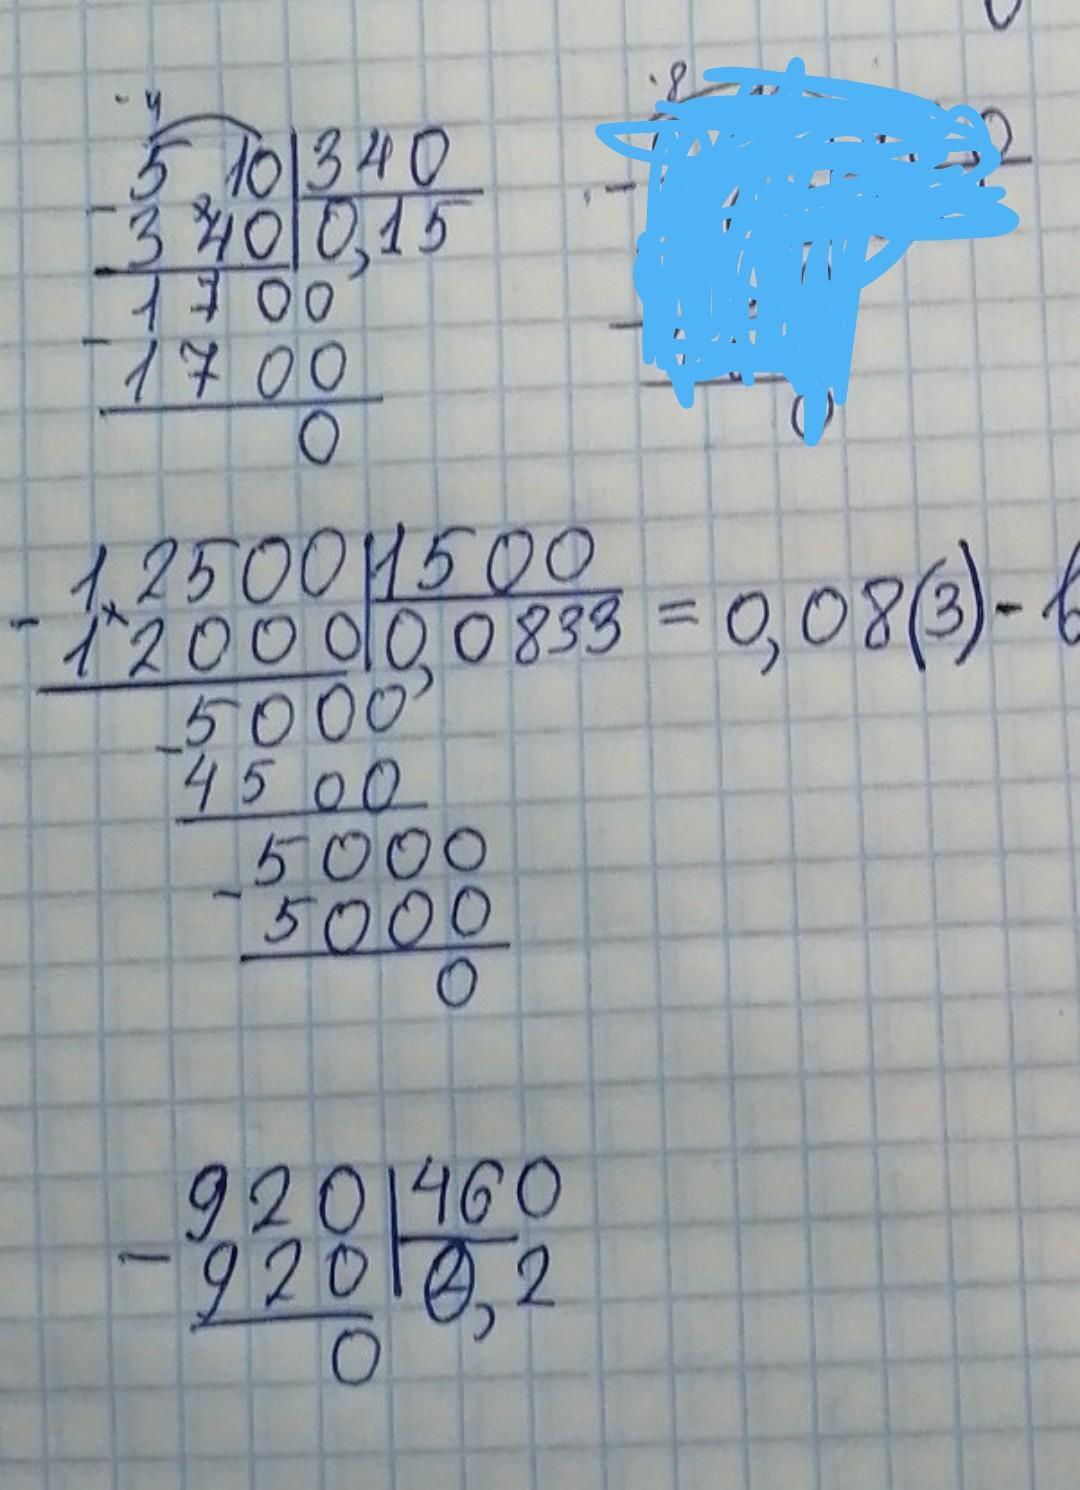 4
5 10 340
- 340 0,15
1700
- 1700
0
8
2
-
0
12500 1500
- 12000 0,0833 = 0,08(3) -
5000
- 4500
5000
- 5000
0
920 460
- 920 0,2
0